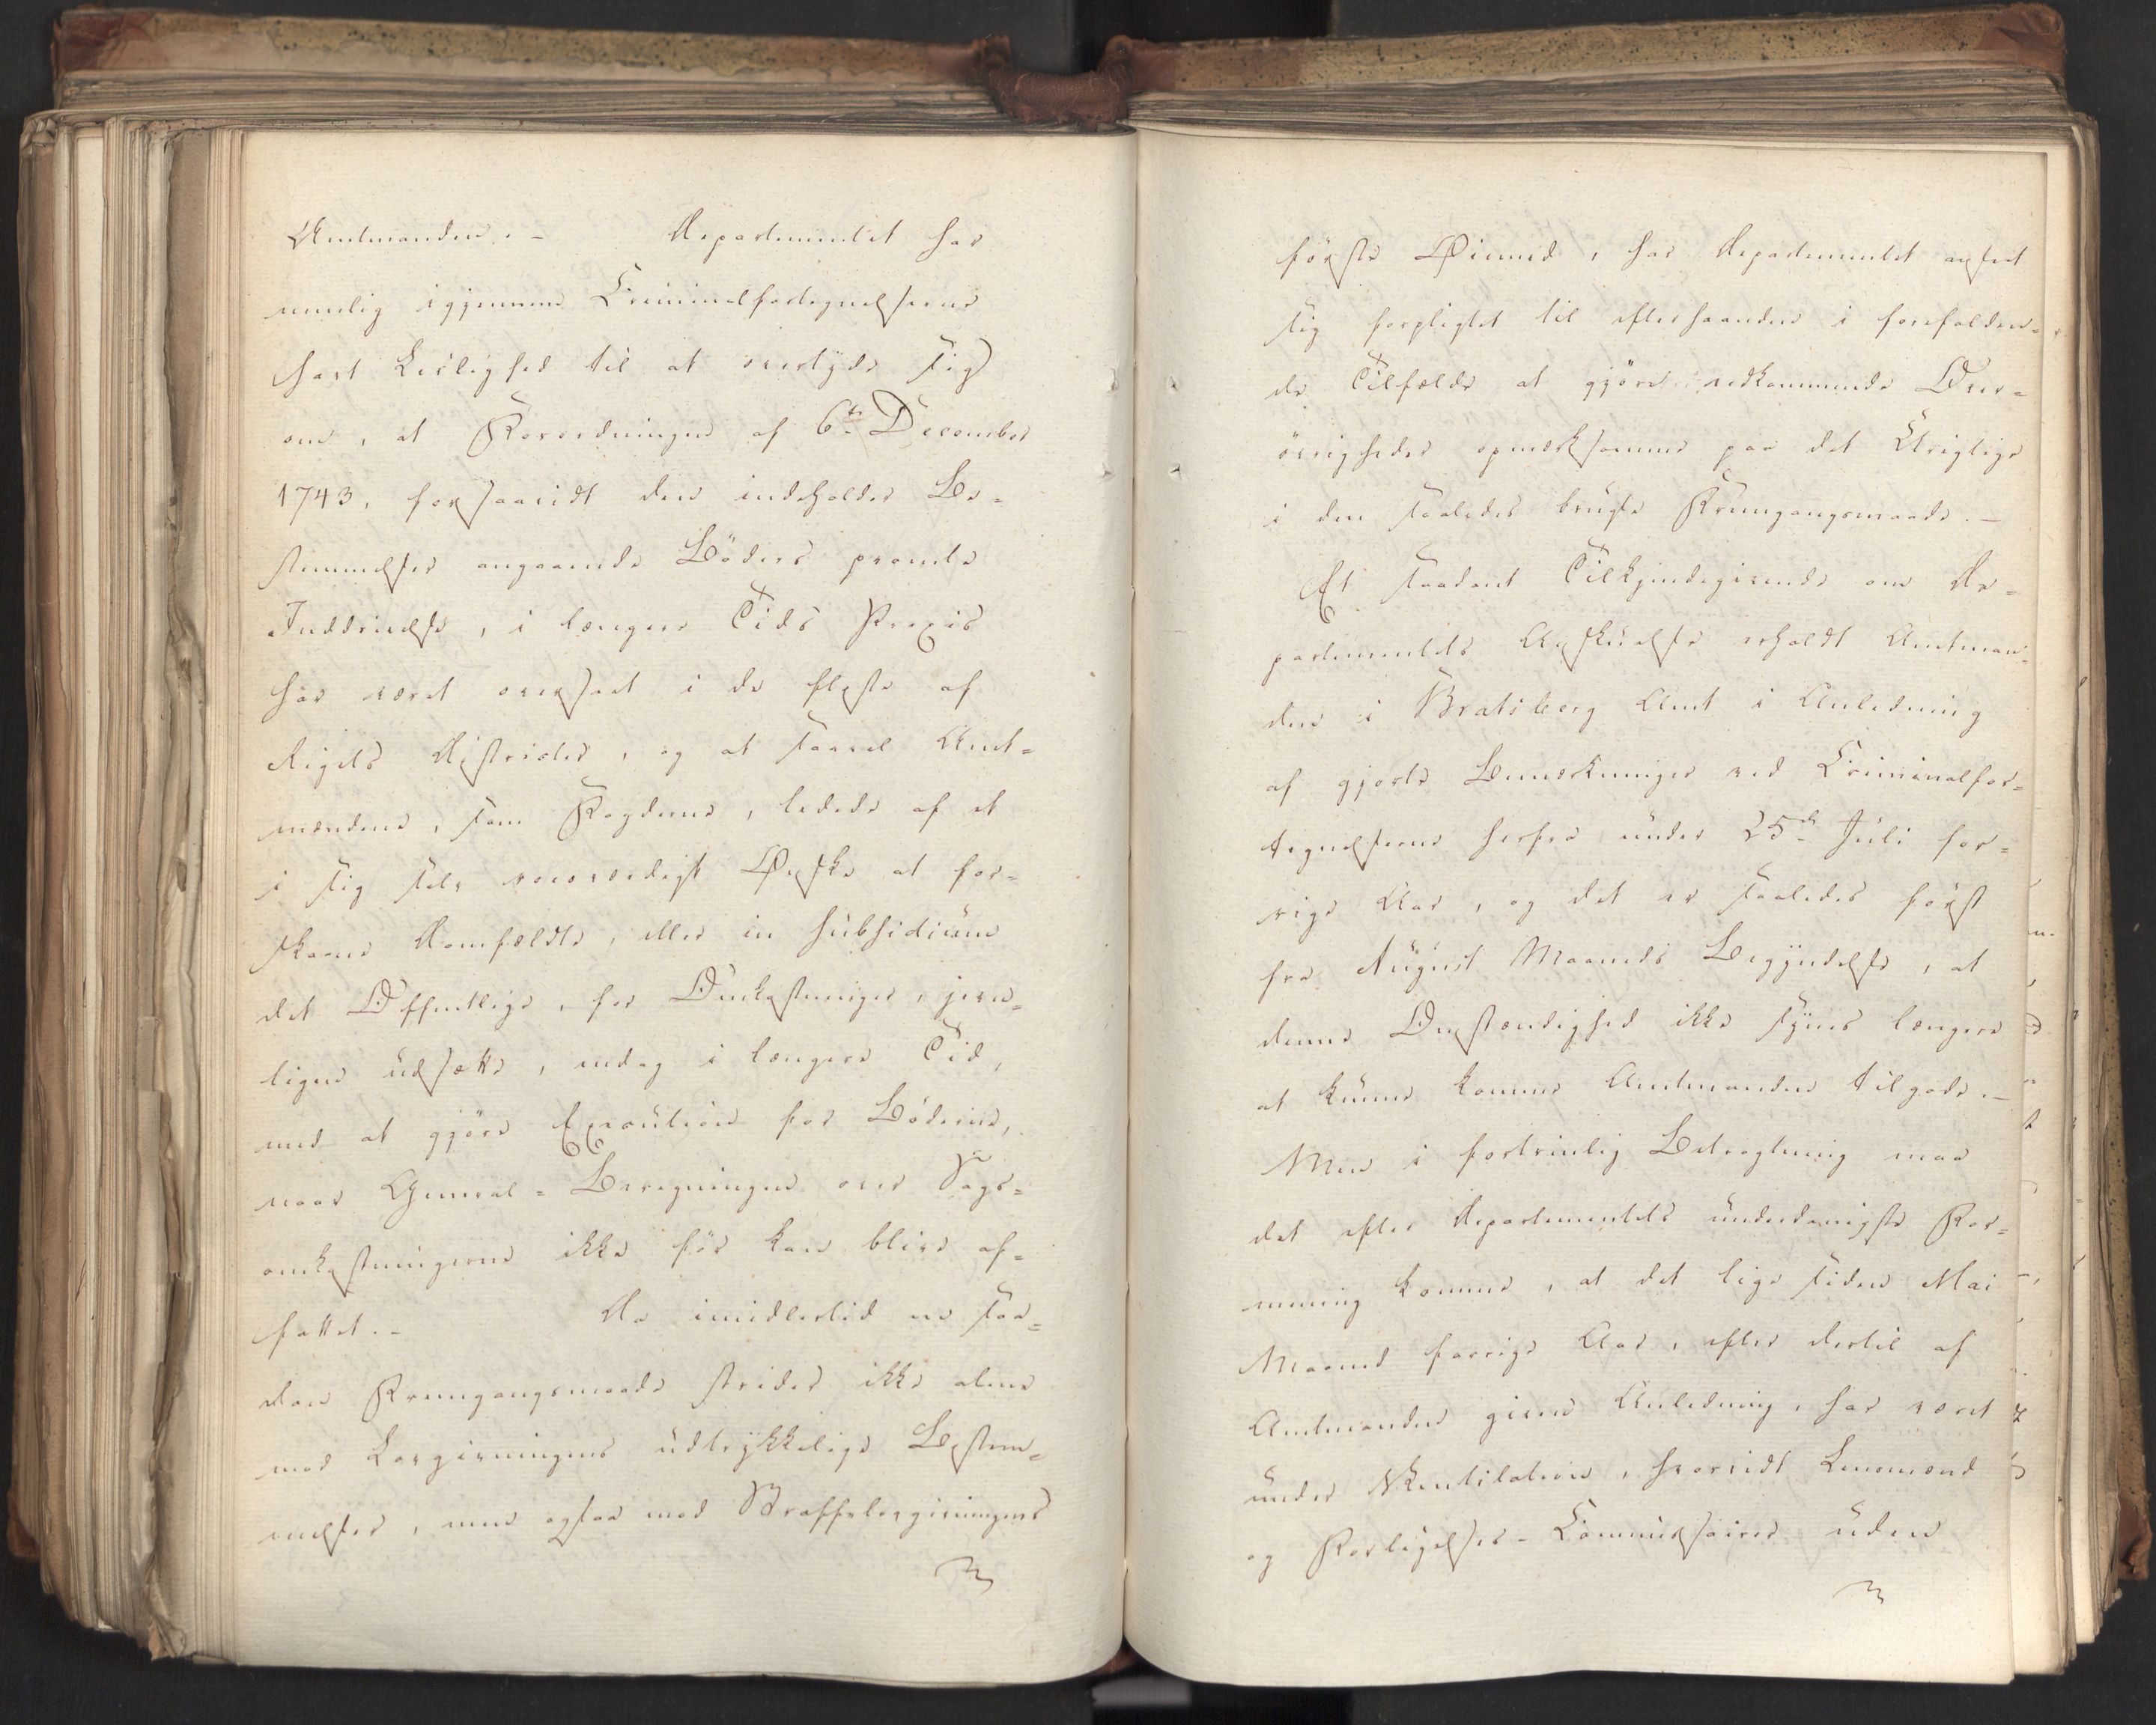 Amtmanden. – Departementet har
nemlig igjennem Criminalfortegnelserne
havt Leilighed til at overtyde sig
om, at Forordningen af 6te December
1743, forsaavidt den indeholder Be=
stemmelser angaaende Böders promte
Inddrivelse, i længere Tids Praxis
har været overseet i de fleste af
Rigets Districter, og at saavel Amt=
mændene, som Fogderne, ledede af et
i sig selv roesværdigt Ønske at for=
skaane Domfældte, eller in subsidium
det Offentlige, for Omkostninger, jevn=
ligen udsætte, endog i længere Tid,
med at gjöre Execution for Böderne,
naar General=Beregningen over Sags=
omkostningerne ikke för kan blive af=
fattet. – Da imidlertid en saa=
dan Fremgangsmaade strider ikke alene
mod Lovgivningens udtrykkelige Bestem=
melser, men ogsaa mod Straffelovgivningens
förste Øiemed, har Departementet anseet
sig forpligtet til efterhaanden i forefalden=
de Tilfælde at gjöre vedkommende Over=
övrigheder opmærksomme paa det Urigtige
i den saaledes brugte Fremgangsmaade. –
Et saadant Tilkjendegivende om De=
partementets Anskuelse erholdt Amtman=
den i Bratsberg Amt i Anledning
af gjorte Bemærkninger ved Criminalfor=
tegnelserne herfra under 25de Juli for=
rige Aar, og det er saaledes först
fra August Maaneds Begyndelse, at
denne Omstændighed ikke synes længere
at kunne komme Amtmanden tilgode. –
Men i fortrinlig Betragtning maa
det efter Departementets underdanigste For=
mening komme, at det lige siden Mai
Maaned forrige Aar, efter dertil af
Amtmanden given Anledning, har været
under Ventilation, hvorvidt Lensmænd
og Forligelses-Commissairer uden